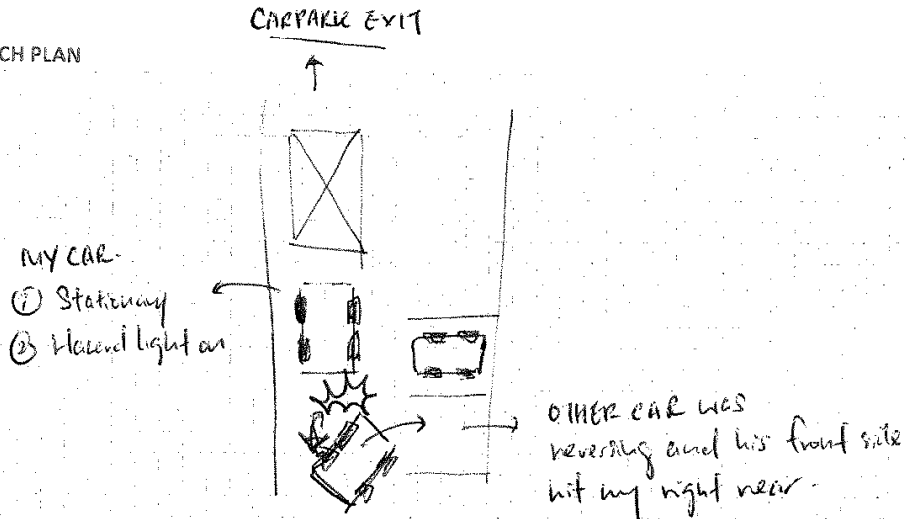 CARPARK EXIT
CH PLAN
MY CAR.
① Stationary
② Hazard light on
OTHER CAR WAS
reversing and his front side
hit my right rear.